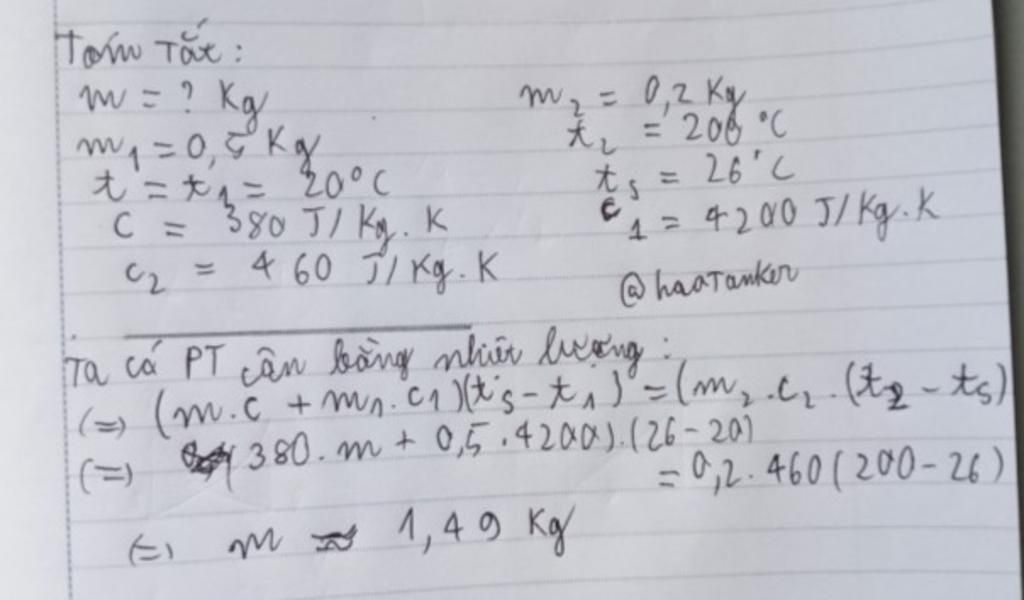 Tóm Tắt:
m = ? Kg
m₁ = 0,5 Kg
t = t₁ = 20°C
C = 380 J/Kg.K
c₂ = 460 J/Kg.K
m₂ = 0,2 Kg
t₂ = 200 °C
t₅ = 26°C
c₁ = 4200 J/Kg.K
@haaTanker
Ta có PT cân bằng nhiệt lượng:
(=) (m.c + m₁.c₁)(t₅ - t₁) = (m₂.c₂.(t₂ - t₅)
(=) (380.m + 0,5.4200).(26 - 20)
= 0,2.460(200 - 26)
(=) m ≈ 1,49 Kg